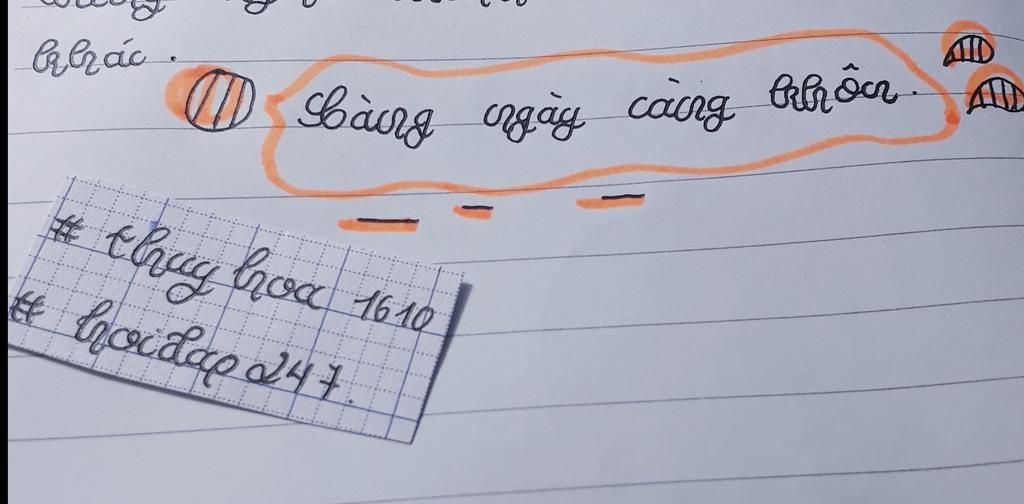 khác .
ngày càng khôn.
# thuy hoa 1610
# hoidap 247.